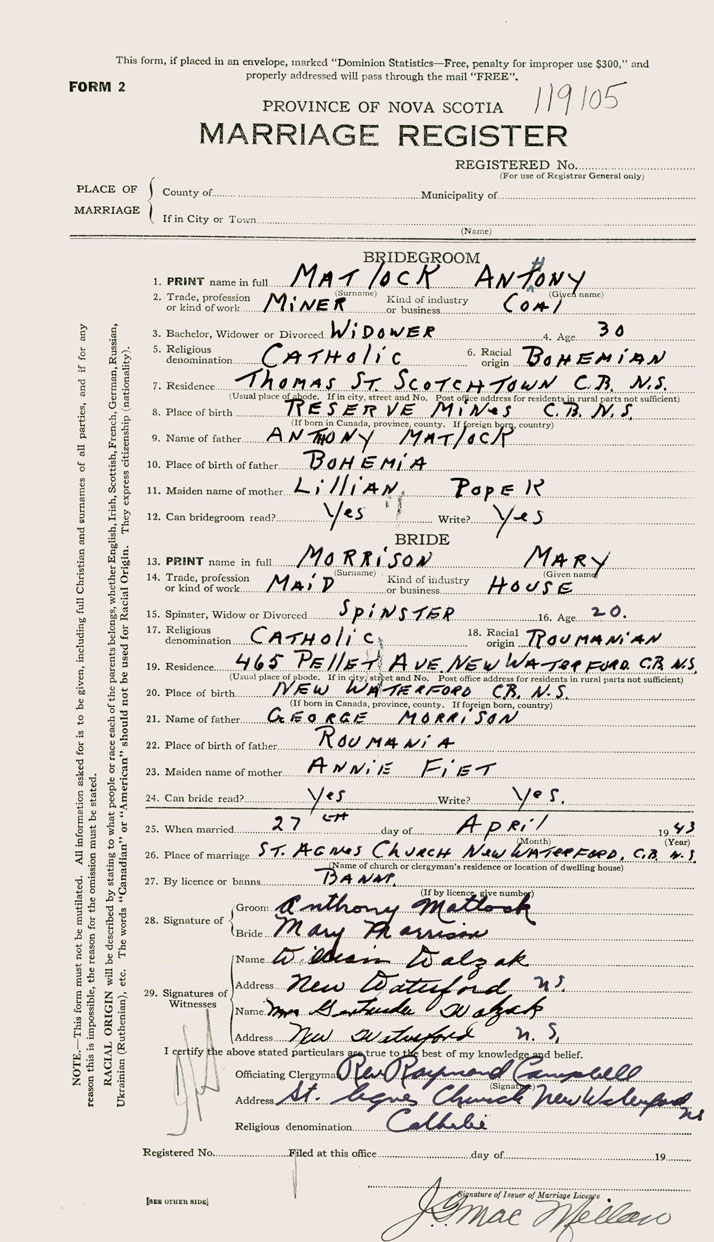 This form, if placed in an envelope, marked "Dominion Statistics—Free, penalty for improper use $300," and
properly addressed will pass through the mail "FREE".
FORM 2
PROVINCE OF NOVA SCOTIA 119105
MARRIAGE REGISTER
REGISTERED No.
(For use of Registrar General only)
PLACE OF MARRIAGE
County of Municipality of
If in City or Town
(Name)
BRIDEGROOM
1. PRINT name in full MATLOCK ANTHONY
(Surname) (Given name)
2. Trade, profession or kind of work MINER Kind of industry or business COAL
3. Bachelor, Widower or Divorced WIDOWER 4. Age 30
5. Religious denomination CATHOLIC 6. Racial origin BOHEMIAN
7. Residence THOMAS ST. SCOTCHTOWN C.B. N.S.
(Usual place of abode. If in city, street and No. Post office address for residents in rural parts not sufficient)
8. Place of birth RESERVE MINES C.B. N.S.
(If born in Canada, province, county. If foreign born, country)
9. Name of father ANTHONY MATLOCK
10. Place of birth of father BOHEMIA
11. Maiden name of mother LILLIAN POPEK
12. Can bridegroom read? Yes Write? Yes
BRIDE
13. PRINT name in full MORRISON MARY
(Surname) (Given name)
14. Trade, profession or kind of work MAID Kind of industry or business HOUSE
15. Spinster, Widow or Divorced SPINSTER 16. Age 20.
17. Religious denomination CATHOLIC 18. Racial origin ROUMANIAN
19. Residence 465 PELLET AVE. NEW WATERFORD. C.B. N.S.
(Usual place of abode. If in city, street and No. Post office address for residents in rural parts not sufficient)
20. Place of birth NEW WATERFORD C.B. N.S.
(If born in Canada, province, county. If foreign born, country)
21. Name of father GEORGE MORRISON
22. Place of birth of father ROUMANIA
23. Maiden name of mother ANNIE FIET
24. Can bride read? Yes Write? Yes.
25. When married 27th day of April 1943
(Month) (Year)
26. Place of marriage ST. AGNES CHURCH NEW WATERFORD, C.B. N.S
(Name of church or clergyman's residence or location of dwelling house)
27. By licence or banns BANNS.
(If by licence, give number)
28. Signature of
Groom Anthony Matlock
Bride Mary Morrison
29. Signatures of Witnesses
Name William Walzak
Address New Waterford N.S.
Name Mrs Gertrude Walzak
Address New Waterford N.S,
I certify the above stated particulars are true to the best of my knowledge and belief.
Officiating Clergyman Rev Raymond Campbell
(Signature)
Address St. Agnes Church New Waterford NS
Religious denomination Catholic
Registered No. Filed at this office day of 19
Signature of Issuer of Marriage Licence
[SEE OTHER SIDE]
NOTE.—This form must not be mutilated. All information asked for is to be given, including full Christian and surnames of all parties, and if for any
reason this is impossible, the reason for the omission must be stated.
RACIAL ORIGIN will be described by stating to what people or race each of the parents belongs, whether English, Irish, Scottish, French, German, Russian,
Ukrainian (Ruthenian), etc. The words "Canadian" or "American" should not be used for Racial Origin. They express citizenship (nationality).